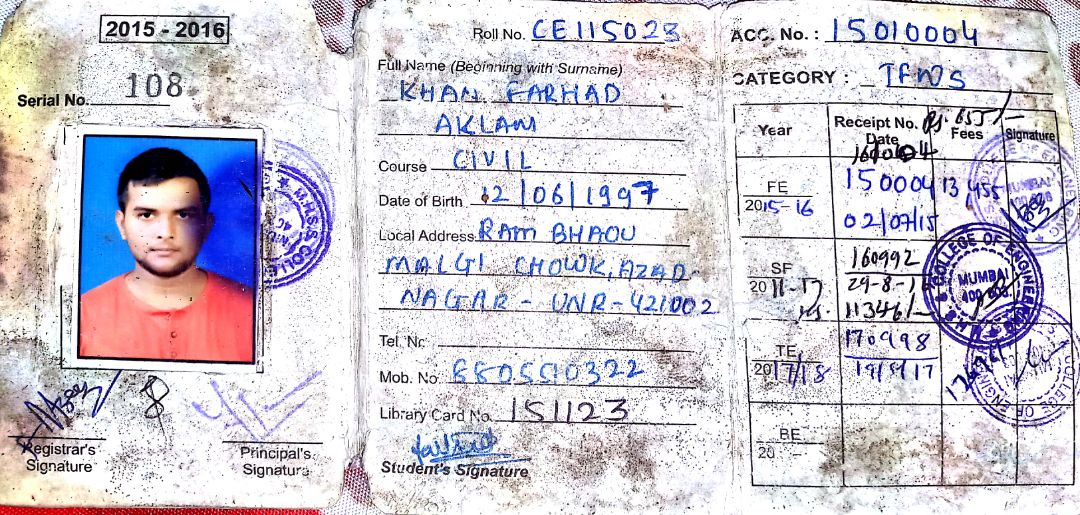 2015 - 2016
Serial No. 108
Registrar's
Signature
Principal's
Signature
Roll No. CE115023
Full Name (Beginning with Surname)
KHAN FARHAD
AKLAM
Course CIVIL
Date of Birth 12/06/1997
Local Address RAM BHAOU
MALGI CHOWK, AZAD
NAGAR - UNR - 421002
Tel. No
Mob. No. 8805590322
Library Card No. 151123
Student's Signature
ACC. No. : 15010004
CATEGORY : TFWS
Year Receipt No. Date Fees Signature
FE 2015-16 150004 13,455
02/07/15
SE 160992
29-8-
TE 2017/18 170998
BE
20
COLLEGE OF ENGINEERING
MUMBAI
400 008